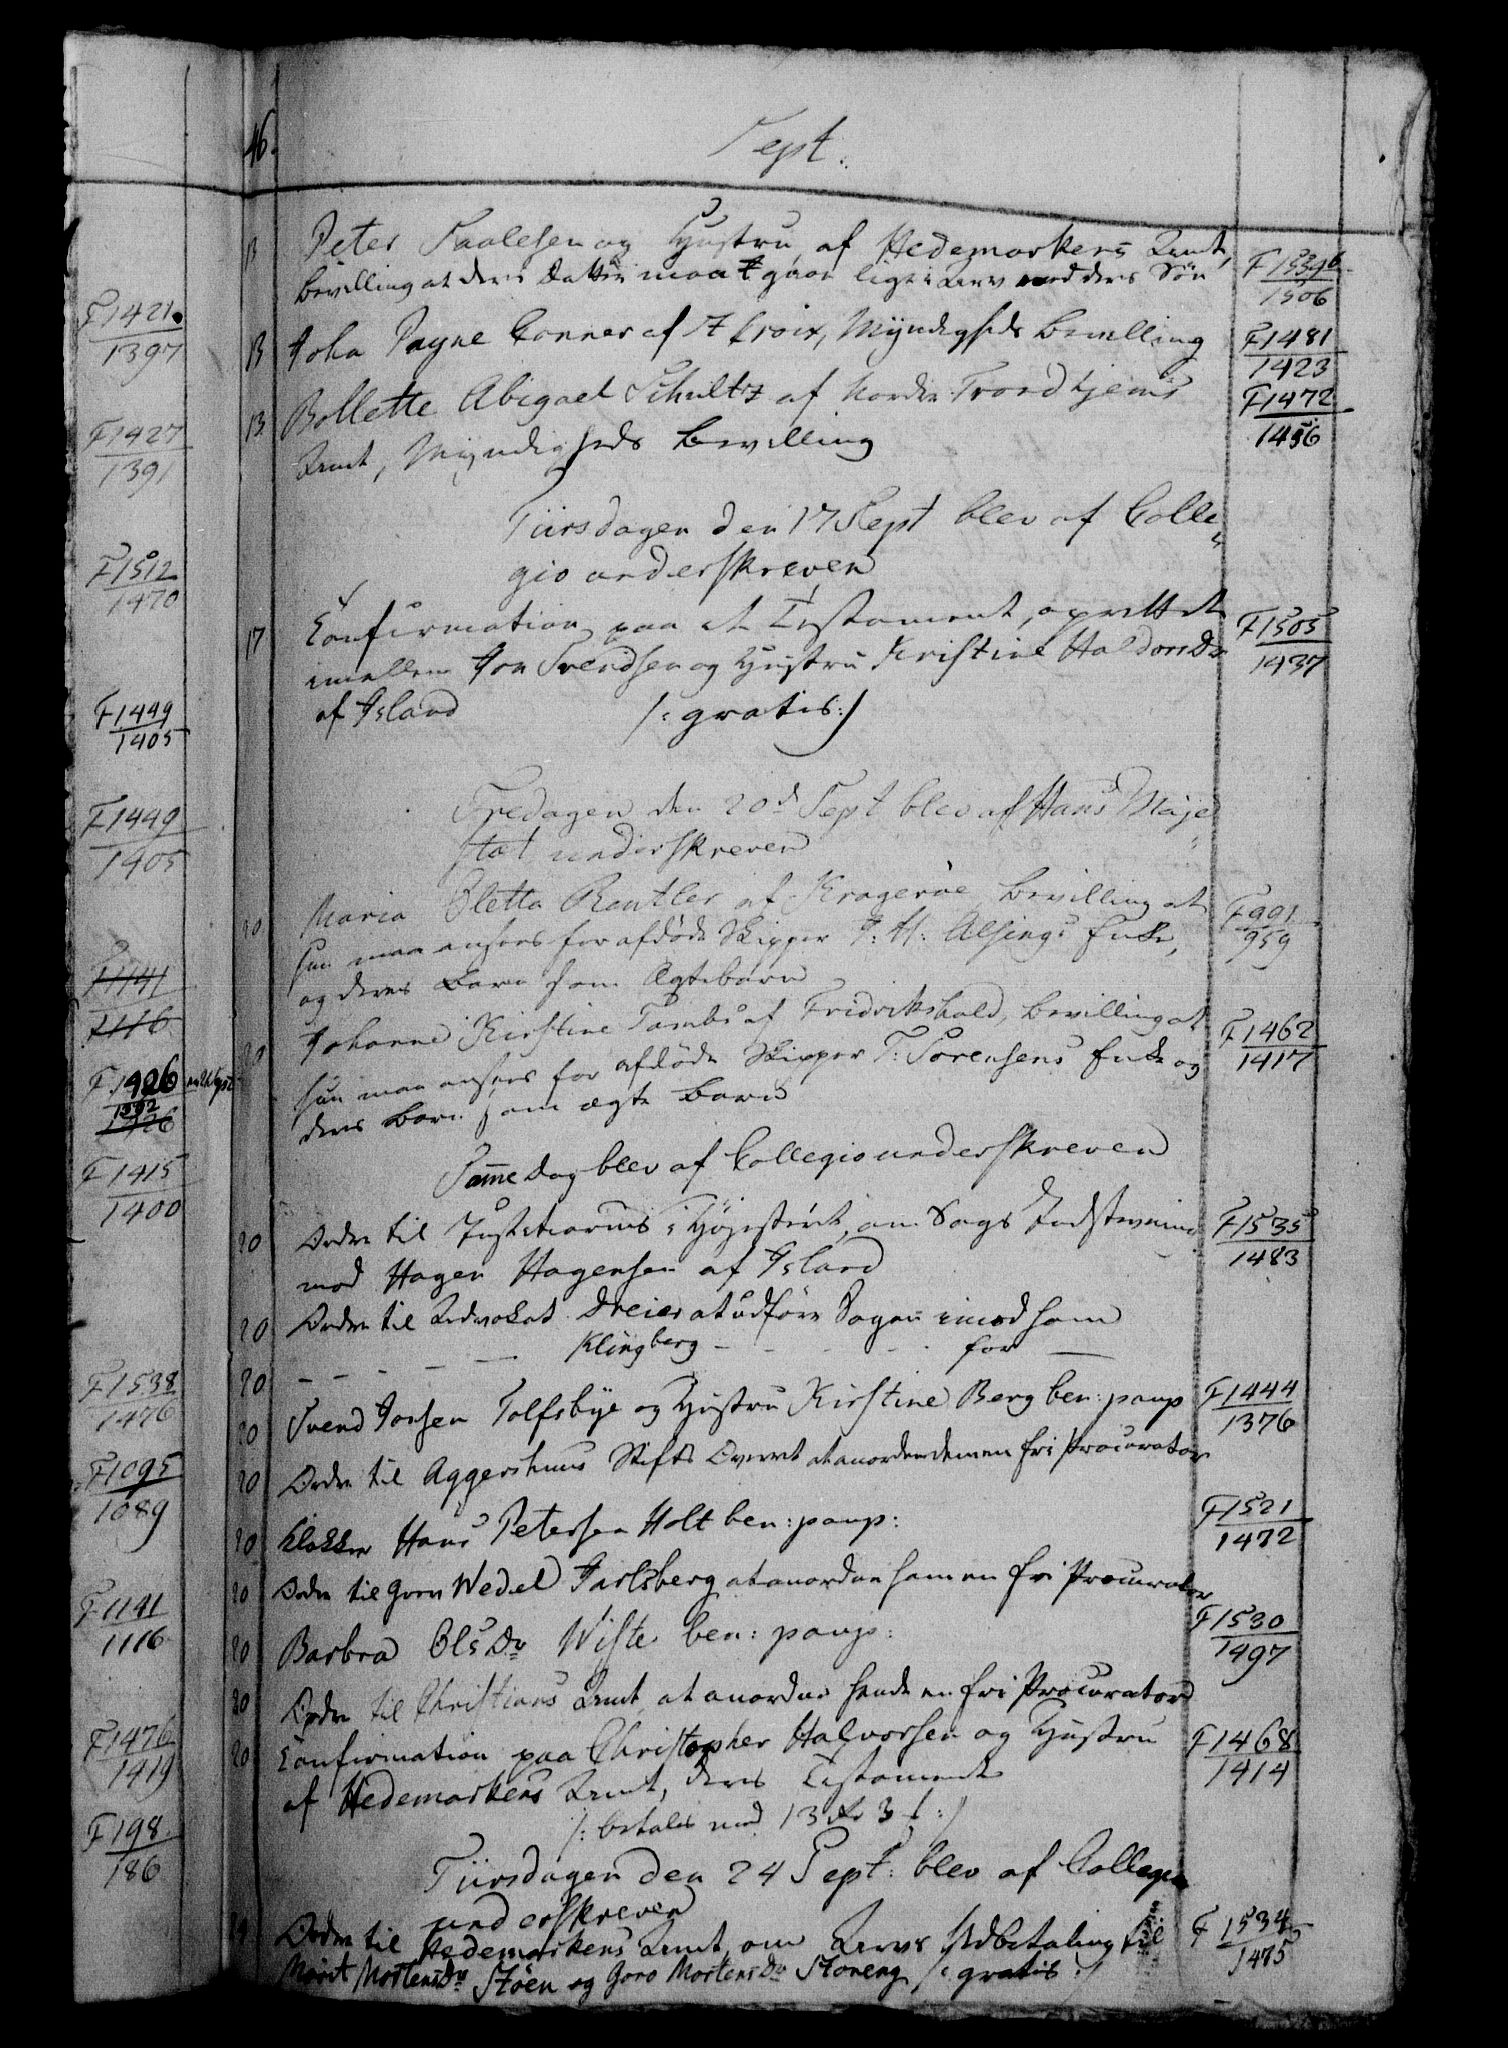 46.
Sept:
13 Peter Paalesen og Hustru, af Hedemarkens Amt,
Bevilling at deres Datter maa gaae lige i Arv med deres Søn
1506
13 John Payne Conner af St Croix, Myndigheds Bevilling F1481
1423
13 Bollette Abigael Schultz af Nordre Trondhjems F1472
Amt, Myndigheds Bevilling 1456
Tiirsdagen den 17 Sept blev af Colle„
gio underskreven
17 Confirmation paa et Testament, oprettet F1505
imellem Jon Svendsen og Hustru Kristine Haldorsdr 1437
af Island /: gratis :/
Fredagen den 20d Sept blev af Hans Maje„
stæt underskreven
20 Maria Oletta Rentler af Krageröe, Bevilling at F991
hun maa ansees for afdøde Skipper J: H: Alsings Enke, 959
og deres Barn som Ægtebarn
20 Johanne Kirstine Tambs af Fridrikshald, Bevilling at F1462
hun maa ansees for afdøde Skipper T: Sorensens Enke og 1417
deres Barn som ægte Barn
Samme Dag blev af Collegio underskreven
20 Ordre til Justitiarius i Höjesteret, om Sags Indstevning F1535
mod Hagen Hagensen af Island 1483
20 Ordre til Advokat Dreier at udföre Sagen imod ham
20 – – – – Klingberg – – – – for —
20 Svend Jonsen Tolfsbye og Hustru Kirstine Berg ben: paup F1444
1376
20 Ordre til Aggershuus Stifts Overret at anordne dem en fri Procurator
20 Klokker Hans Petersen Holt ben: paup: F1521
1472
20 Ordre til Grev Wedel Jarlsberg at anordne ham en fri Procurator
20 Barbra Olsdr Wiste ben: paup: F1530
1497
20 Ordre til Christians Amt at anordne hende en fri Procurator
20 Confirmation paa Christopher Halvorsen og Hustru F1468
af Hedemarkens Amt, deres Testamente 1414
/: betales med 13 rd 3 :/
Tiirsdagen den 24 Sept: blev af Collegio
underskreven
24 Ordre til Hedemarkens Amt, om Arvs Udbetaling til F1534
Marit Mortensdr Støen og Goro Mortensdr Storeng /: gratis :/ 1475
F1421
1397
F1427
1391
F1512
1470
F1449
1405
F1449
1405
F1141
1116
F1426
1392
1426
F1415
1400
F1538
1476
F1095
1089
F1141
1116
F1476
1419
F198
186